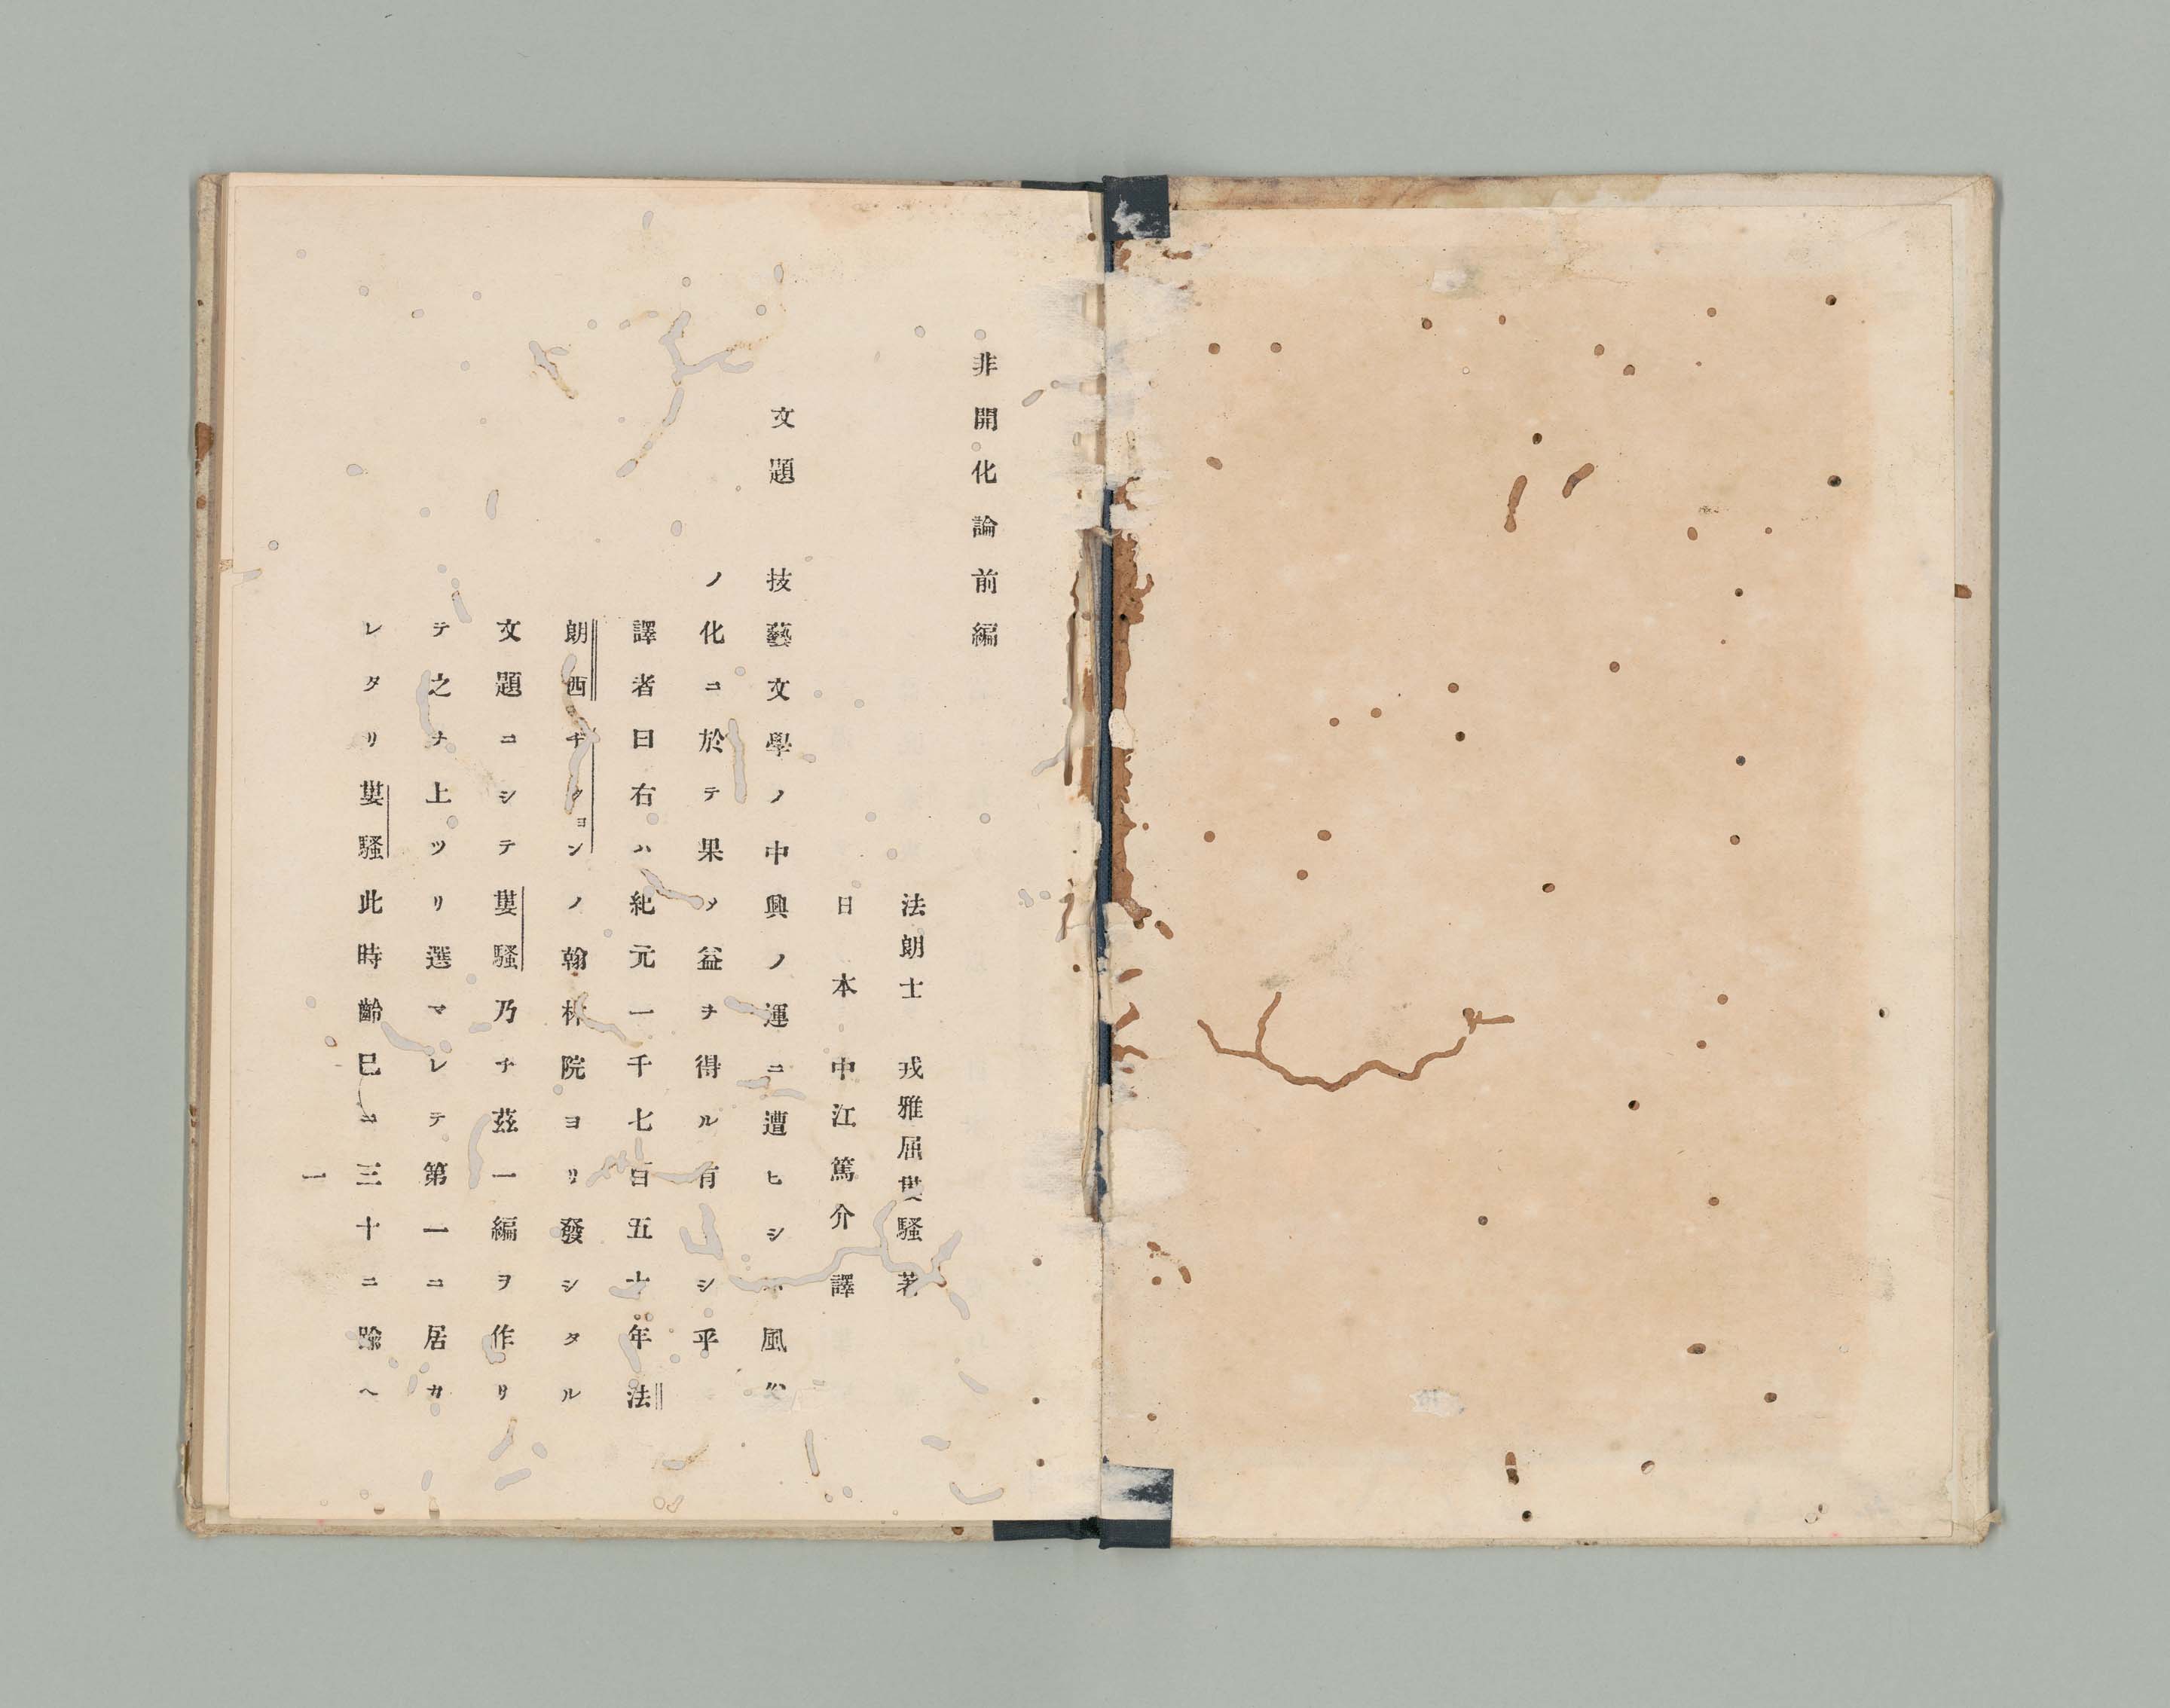 非開化論前編
法朗士 戎雅屈婁騒著
日本 中江篤介 譯
文題 技藝文學ノ中興ノ運ニ遭ヒシハ風
ノ化ニ於テ果ソ益ヲ得ル有シ乎
譯者曰右ハ紀元一千七百五十年法
朗西ヂジョンノ翰林院ヨリ發シタル
文題ニシテ婁騒乃チ茲一編ヲ作リ
テ之ヲ上ツリ選マレテ第一ニ居カ
レタリ婁騒此時齡巳ニ三十ニ踰ヘ
一